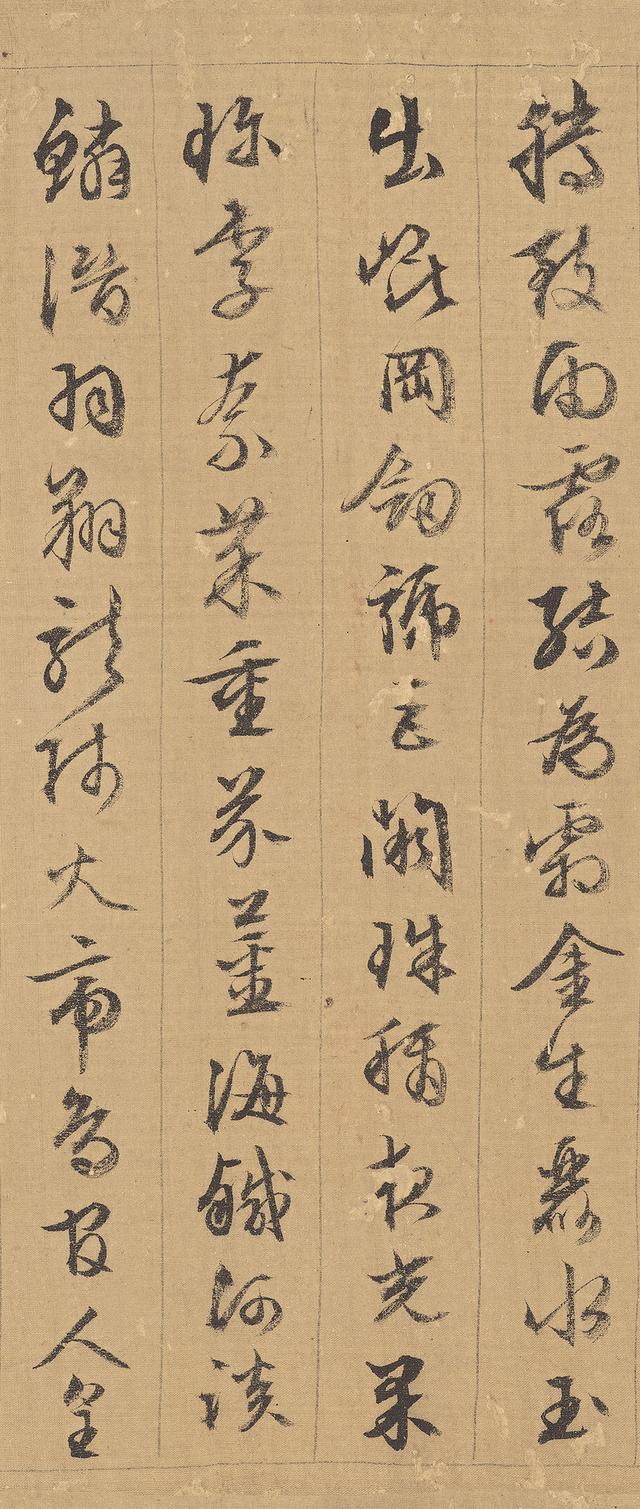 騰致雨露結為霜金生麗水玉
出崐岡劍號巨闕珠稱夜光果
珍李柰菜重芥薑海鹹河淡
鱗潛羽翔龍師火帝鳥官人皇